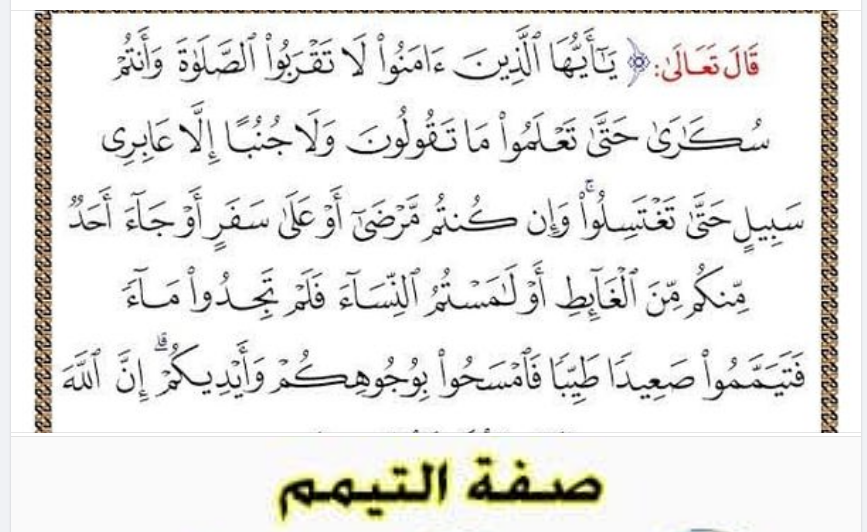 قَالَ تَعَالَىٰ: ﴿ يَـٰٓأَيُّهَا ٱلَّذِينَ ءَامَنُوا۟ لَا تَقْرَبُوا۟ ٱلصَّلَوٰةَ وَأَنتُمْ
سُكَـٰرَىٰ حَتَّىٰ تَعْلَمُوا۟ مَا تَقُولُونَ وَلَا جُنُبًا إِلَّا عَابِرِى
سَبِيلٍ حَتَّىٰ تَغْتَسِلُوا۟ ۚ وَإِن كُنتُم مَّرْضَىٰٓ أَوْ عَلَىٰ سَفَرٍ أَوْ جَآءَ أَحَدٌ
مِّنكُم مِّنَ ٱلْغَآئِطِ أَوْ لَـٰمَسْتُمُ ٱلنِّسَآءَ فَلَمْ تَجِدُوا۟ مَآءً
فَتَيَمَّمُوا۟ صَعِيدًا طَيِّبًا فَٱمْسَحُوا۟ بِوُجُوهِكُمْ وَأَيْدِيكُمْ ۗ إِنَّ ٱللَّهَ
صفة التيمم